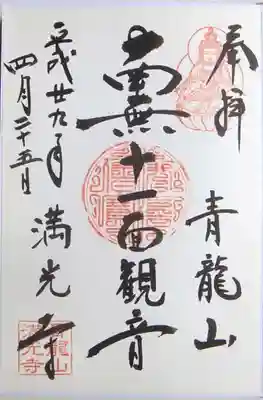 奉拝
青龍山
南無十一面観音
満光寺
平成廿九年
四月二十五日
青龍山
満光寺